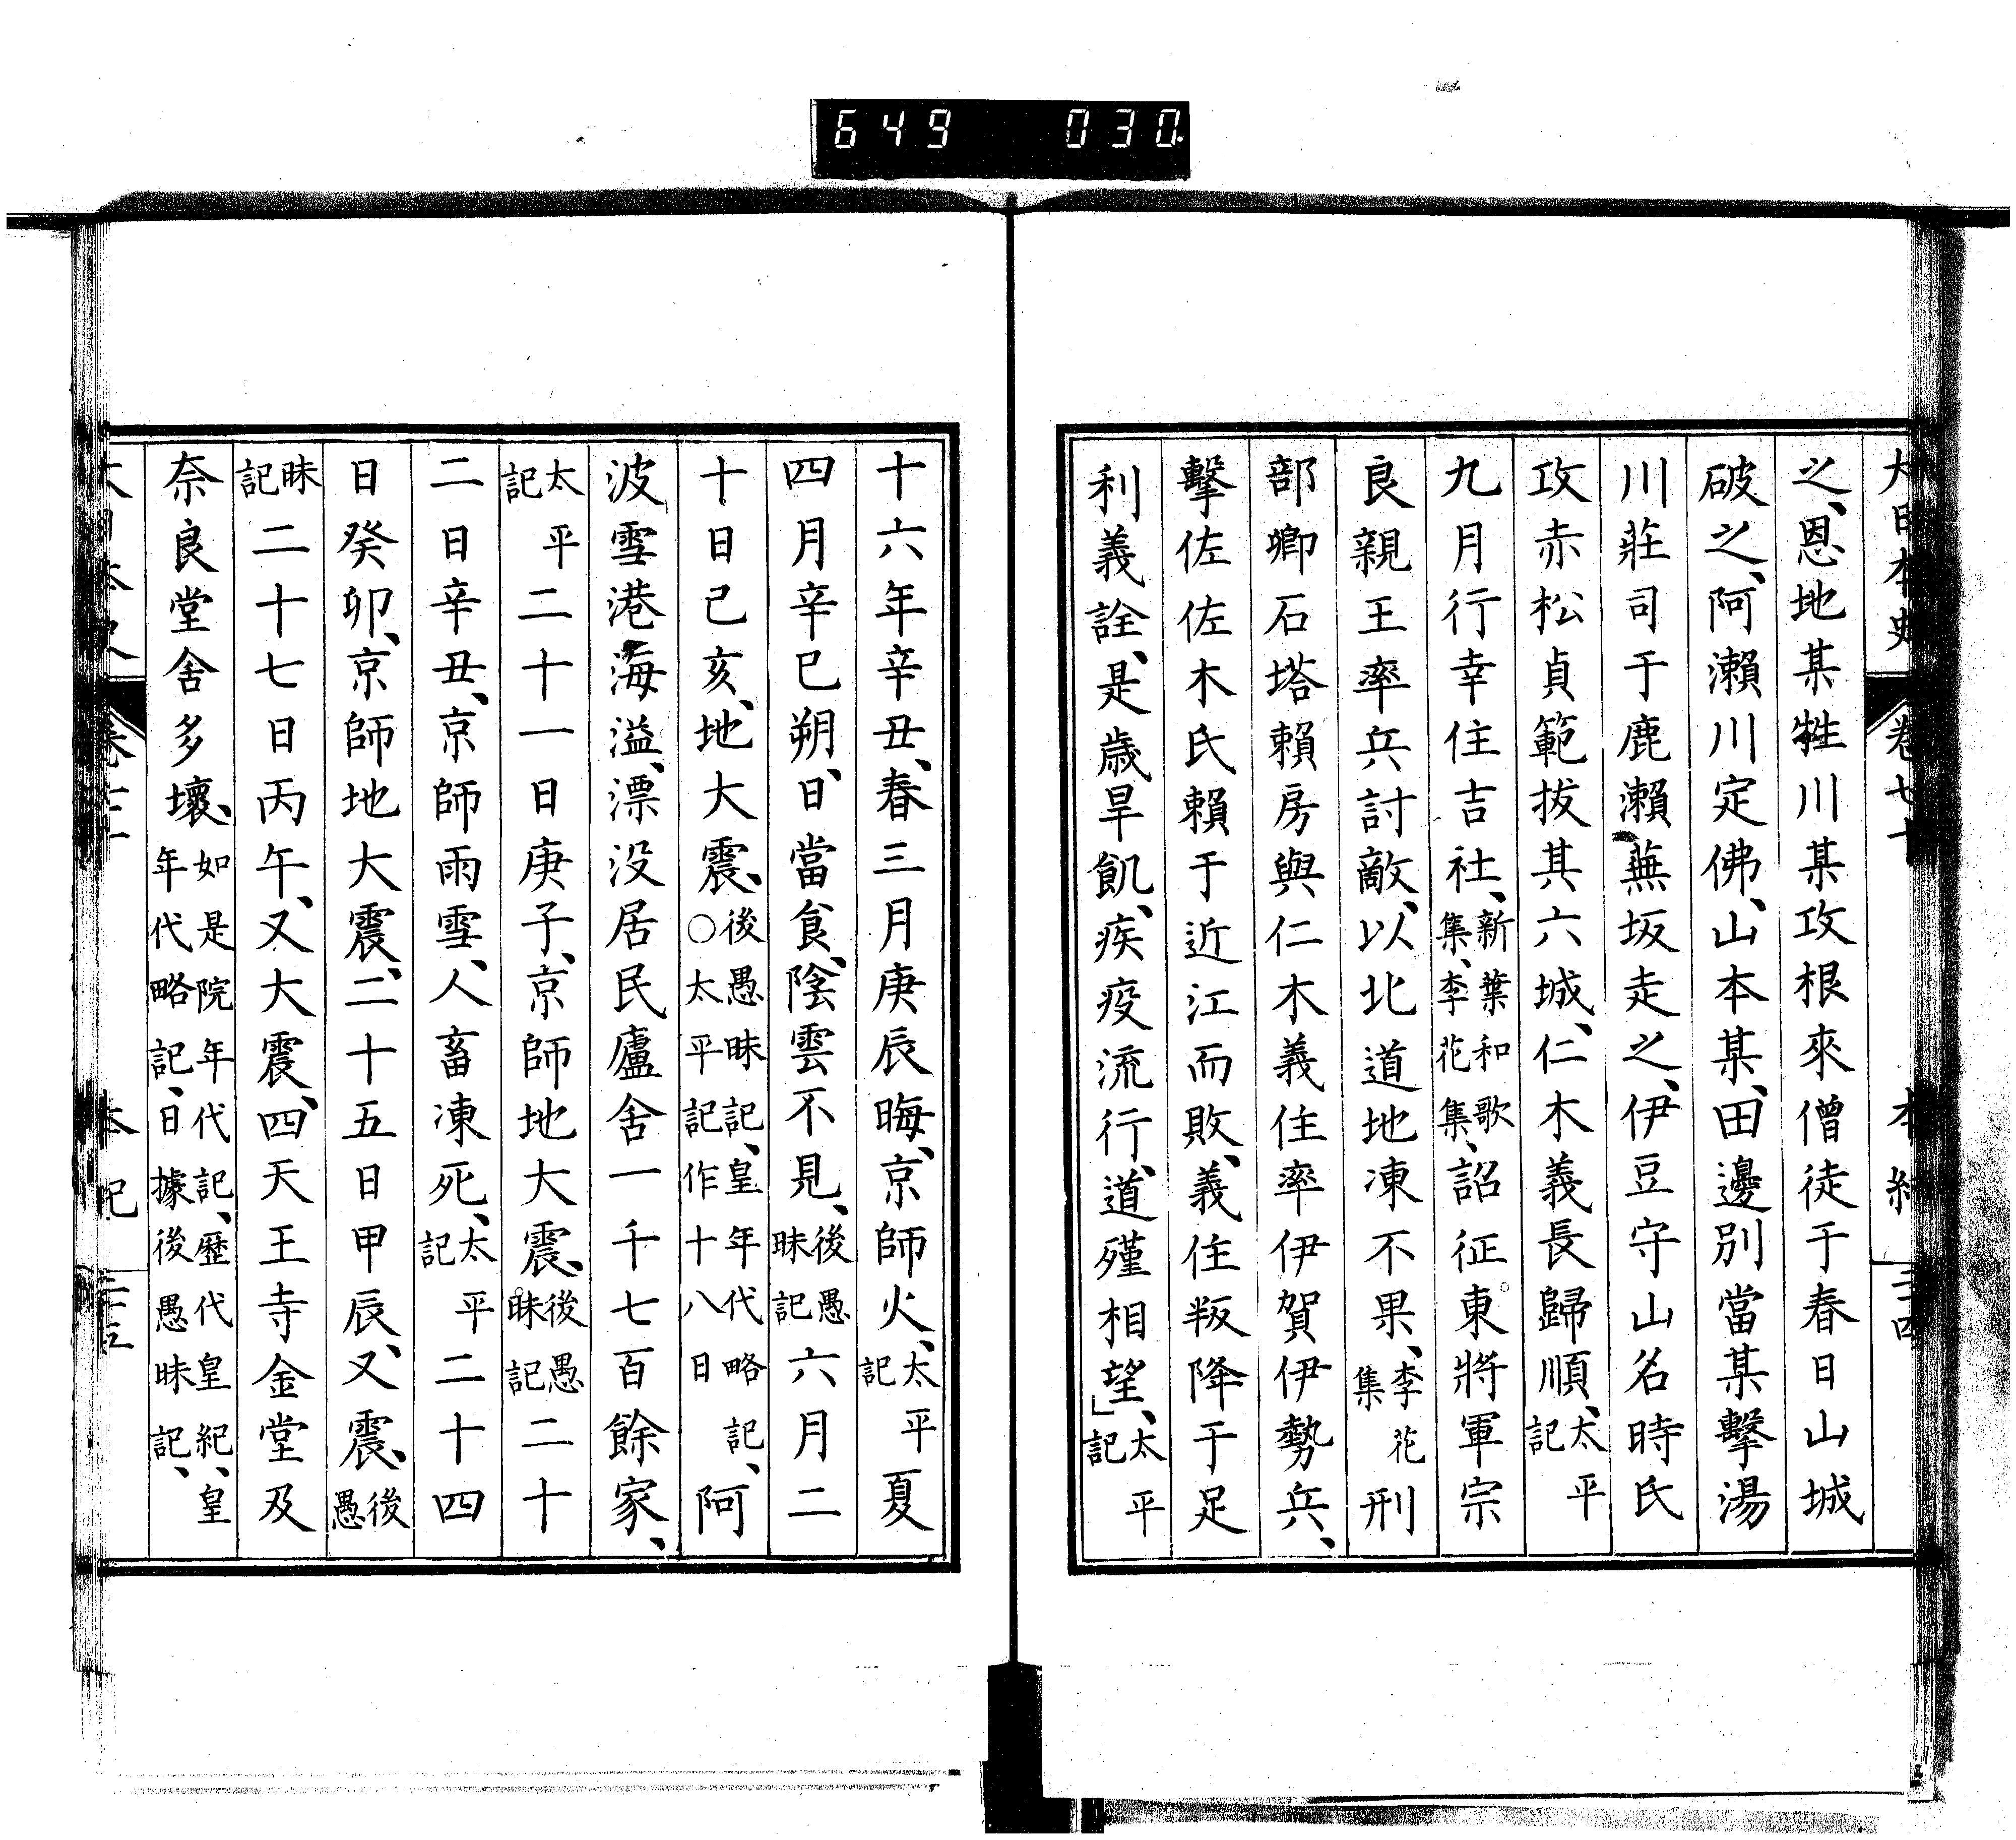 649 030
大日本史 卷七十 本紀 三十四
之、恩地某牲川某攻根來僧徒于春日山城
破之、阿瀨川定佛、山本某、田邊別當某擊湯
川莊司于鹿瀨蕪坂走之、伊豆守山名時氏
攻赤松貞範拔其六城、仁木義長歸順、太平記
九月行幸住吉社、新葉和歌集、李花集、詔征東將軍宗
良親王率兵討敵、以北道地凍不果、李花集刑
部卿石塔賴房與仁木義住率伊賀伊勢兵、
擊佐佐木氏賴于近江而敗、義住叛降于足
利義詮、是歲旱飢、疾疫流行、道殣相望、」太平記
十六年辛丑、春三月庚辰晦、京師火、太平記夏
四月辛巳朔、日當食、陰雲不見、後愚昧記六月二
十日己亥、地大震、後愚昧記、皇年代略記、○太平記作十八日阿
波雪港海溢、漂没居民廬舍一千七百餘家、
太平記二十一日庚子、京師地大震、後愚昧記二十
二日辛丑、京師雨雪、人畜凍死、太平記二十四
日癸卯、京師地大震、二十五日甲辰、又震、後愚
昧記二十七日丙午、又大震、四天王寺金堂及
奈良堂舍多壞、如是院年代記、歷代皇紀、皇年代略記、日據後愚昧記、
本紀